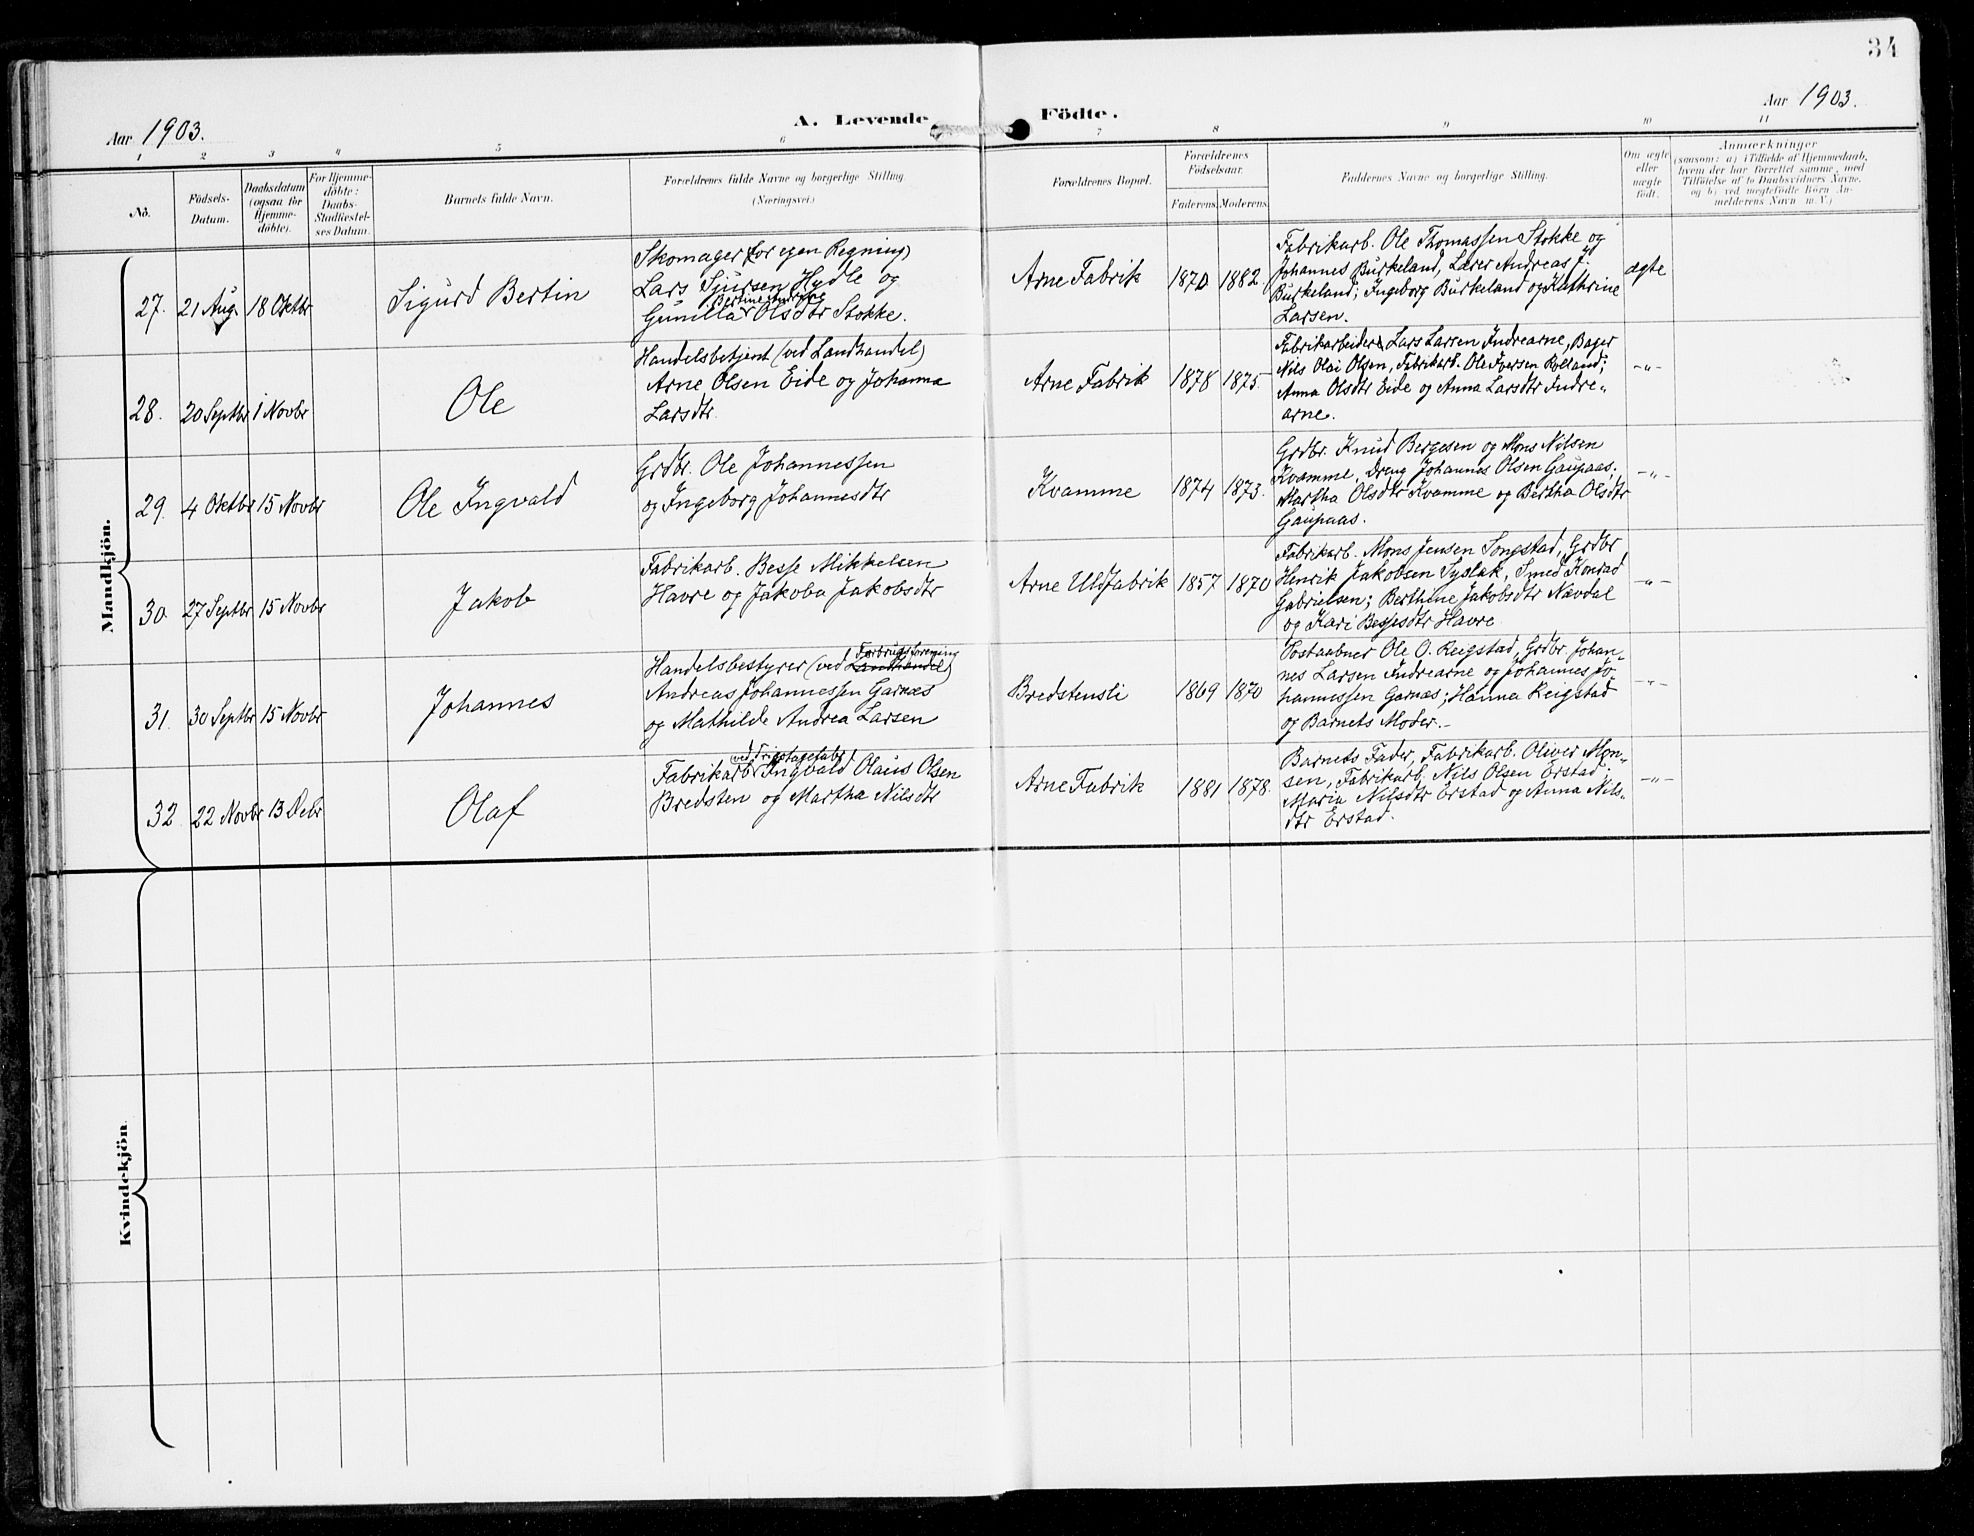 34
Aar 1903.
A. Levende
Födte.
Aar 1903.
1 2 3 4 5 6 7 8 9 10 11
No.
Födsels-
Datum.
Daabsdatum
(ogsaa for
Hjemme-
döbte).
For Hjemme-
döbte:
Daabs-
Stadfæstel-
ses Datum.
Barnets fulde Navn.
Forældrenes fulde Navne og borgerlige Stilling.
(Næringsvei.)
Forældrenes Bopæl.
Forældrenes
Födselsaar.
Faderens. Moderens.
Faddernes Navne og borgerlige Stilling.
Om ægte
eller
uægte
födt.
Anmærkninger
(saasom: a) i Tilfælde af Hjemmedaab,
hvem der har forrettet samme, med
Tilföielse af to Daabsvidners Navne.
og b) ved uægtefödte Börn An-
melderens Navn m. V.)
Mandkjön.
27. 21 Aug. 18 Oktbr
Sigurd Bertin
Skomager (for egen Regning)
Lars Sjursen Hydle og
Gunilla Olsdtr Stokke.
Arne Fabrik 1870 1882
Fabrikarb. Ole Thomassen Stokke og
Johannes Burkeland, Lærer Andreas J.
Burkeland; Ingeborg Burkeland og Kathrine
Larsen.
ægte
28. 20 Septbr 1 Novbr
Ole
Handelsbetjent (ved Landhandel)
Arne Olsen Eide og Johanna
Larsdtr.
Arne Fabrik 1878 1875.
Fabrikarbeider Lars Larsen Indrearne, Bager
Nils Olai Olsen, Fabrikarb. Ole Iversen Rolland;
Anna Olsdtr Eide og Anna Larsdtr Indre„
arne.
-„-
29. 4 Oktbr 15 Novbr
Ole Ingvald
Grdbr. Ole Johannessen
og Ingeborg Johannesdtr
Kvamme 1874 1873.
Grdbr. Knud Bergesen og Mons Nilsen
Kvamme, Dreng Johannes Olsen Gaupaas.
Martha Olsdtr Kvamme og Bertha Olsdtr
Gaupaas.
-„-
30. 27 Septbr 15 Novbr
Jakob
Fabrikarb. Besse Mikkelsen
Havre og Jakoba Jakobsdtr
Arne Uldfabrik 1857 1870
Fabrikarb. Mons Jensen Songstad, Grdbr
Henrik Jakobsen Syslak, Smed Konrad
Gabrielsen; Berthine Jakobsdtr Nævdal
og Kari Bessesdtr Havre.
-„-
31. 30 Septbr 15 Novbr
Johannes
Forbrugsforening
Handelsbestyrer (ved Landhandel)
Andreas Johannessen Garnæs
og Mathilde Andrea Larsen
Bredstensli 1869 1870
Postaabner Ole O. Reigstad, Grdbr. Johan„
nes Larsen Indrearne og Johannes Jo„
hannessen Garnæs; Hanna Reigstad
og Barnets Moder.-
-„-
32 22 Novbr 13 Debr
Olaf
ved Tricotagefabr.
Fabrikarb. Ingvald Olaus Olsen
Bredsten og Martha Nilsdtr
Arne Fabrik 1881 1878.
Barnets Fader, Fabrikarb. Oliver Mon„
sen, Fabrikarb. Nils Olsen Erstad;
Maria Nilsdtr Erstad og Anna Nils„
dtr Erstad.
-„-
Kvindekjön.